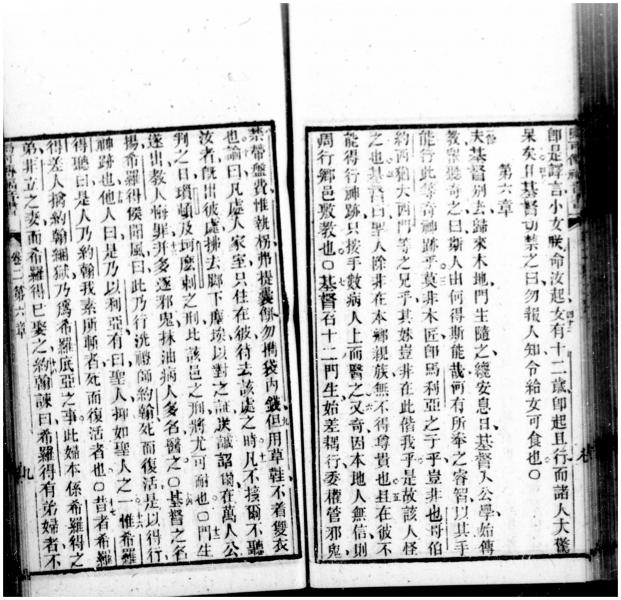 卽是譯言小女朕命汝起女有十二歲卽起且行而諸人大驚
呆矣且基督切禁之曰勿報人知令給女可食也〇
第六章
夫基督別去歸來本地門生隨之纔安息日基督又公學始傳
教衆聽奇之曰斯人由何得斯能哉何有所奉之睿智以其手
能行此等奇神跡乎莫非木匠卽馬利亞之子乎豈非也哥伯
約西猶大西門等之兄乎其妹豈非在此偕我乎是故該人怪
之也基督曰聖人除非在本鄉親族無不得尊貴也且在彼不
能得行神跡只按手數病人上而醫之又奇因本地人無信則
周行鄉邑敷教也〇基督召十二門生始差耦行委權管邪鬼
禁帶盤費惟執柺弗提囊餠勿攜袋內錢但用草鞋不着雙衣
也諭曰凡處人家至只住在彼待去該處之時凡不接爾不聽
汝者旣出彼處拂去脚下塵埃以對之証送誠詔爾在萬人公
判之日瑣頓及坷麽剌之刑比該邑之刑將尤可耐也〇門生
遂出教人悔罪并多逐邪鬼抹油病人多名醫之〇基督之名
揚希羅得侯聞風曰此乃行洗禮師約翰死而復活是以得行
神跡也他人曰是乃以利亞有曰聖人抑如聖人之一惟希羅
得聽曰是人乃約翰我素所斬者死而復活者也〇昔者希羅
得差人擒約翰綑獄乃爲希羅底亞之事此婦本係希羅得之
弟非立之妻而希羅得已娶之約翰諫曰希羅得有弟婦者不
卷二 第六章
九